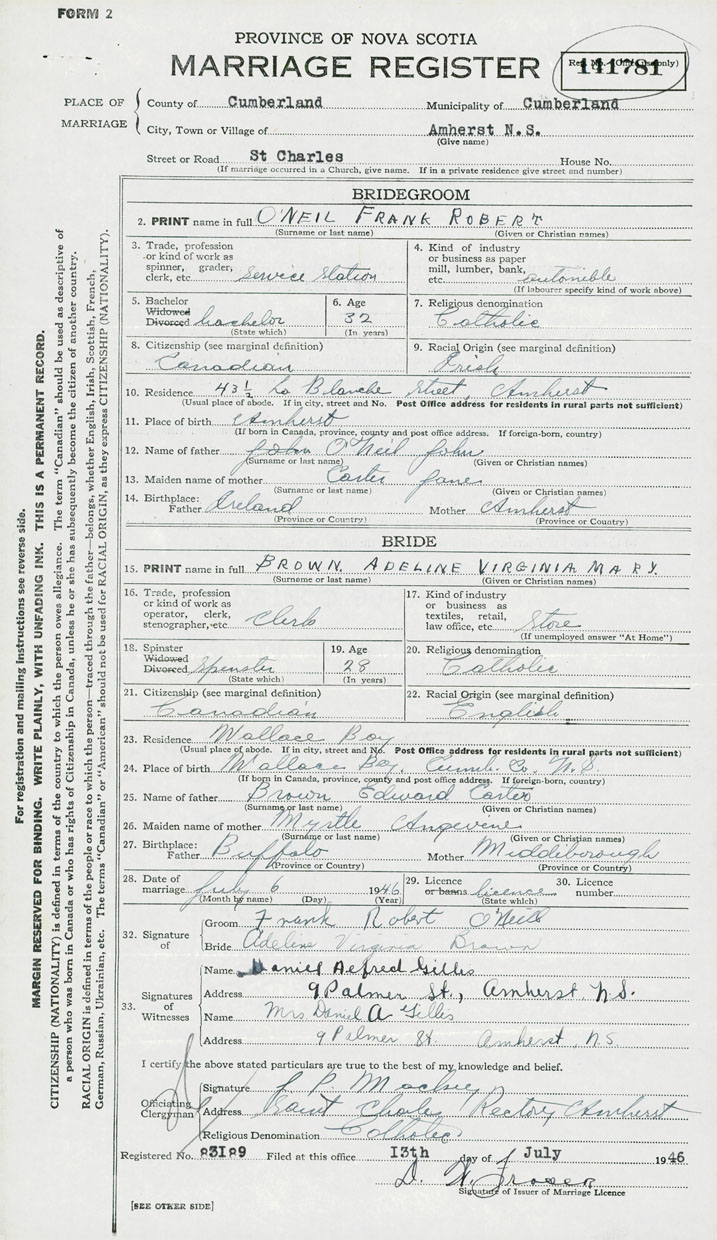 FORM 2
PROVINCE OF NOVA SCOTIA
MARRIAGE REGISTER
141781
PLACE OF MARRIAGE
County of Cumberland Municipality of Cumberland
City, Town or Village of Amherst N.S.
(Give name)
Street or Road St Charles House No.
(If marriage occurred in a Church, give name. If in a private residence give street and number)
BRIDEGROOM
2. PRINT name in full O'NEIL FRANK ROBERT
(Surname or last name) (Given or Christian names)
3. Trade, profession or kind of work as spinner, grader, clerk, etc. Service Station
4. Kind of industry or business as paper mill, lumber, bank, etc.
(If labourer specify kind of work above)
5. Bachelor Widowed Divorced bachelor
(State which)
6. Age 32
(In years)
7. Religious denomination Catholic
8. Citizenship (see marginal definition) Canadian
9. Racial Origin (see marginal definition) Irish
10. Residence 43½ La Blanche Street, Amherst
(Usual place of abode. If in city, street and No. Post Office address for residents in rural parts not sufficient)
11. Place of birth Amherst
(If born in Canada, province, county and post office address. If foreign-born, country)
12. Name of father John O'Neil John
(Surname or last name) (Given or Christian names)
13. Maiden name of mother Carter Jane
(Surname or last name) (Given or Christian names)
14. Birthplace: Father Ireland Mother Amherst
(Province or Country) (Province or Country)
BRIDE
15. PRINT name in full BROWN, ADELINE VIRGINIA MARY.
(Surname or last name) (Given or Christian names)
16. Trade, profession or kind of work as operator, clerk, stenographer, etc. Clerk
17. Kind of industry or business as textiles, retail, law office, etc. Store
(If unemployed answer "At Home")
18. Spinster Widowed Divorced Spinster
(State which)
19. Age 28
(In years)
20. Religious denomination Catholic
21. Citizenship (see marginal definition) Canadian
22. Racial Origin (see marginal definition) English
23. Residence Wallace Bay
(Usual place of abode. If in city, street and No. Post Office address for residents in rural parts not sufficient)
24. Place of birth Wallace Bay, Cumb. Co. N.S
(If born in Canada, province, county and post office address. If foreign-born, country)
25. Name of father Brown Edward Carter
(Surname or last name) (Given or Christian names)
26. Maiden name of mother Myrtle Angevine
(Surname or last name) (Given or Christian names)
27. Birthplace: Father Buffalo Mother Middleborough
(Province or Country) (Province or Country)
28. Date of marriage July 6 1946
(Month by name) (Day) (Year)
29. Licence or banns licence
(State which)
30. Licence number
32. Signature of
Groom Frank Robert O'Neil
Bride Adeline Virginia Brown
33. Signatures of Witnesses
Name Daniel Alfred Gillis
Address 9 Palmer St., Amherst, N.S.
Name Mrs Daniel A Gillis
Address 9 Palmer St. Amherst, N.S.
I certify the above stated particulars are true to the best of my knowledge and belief.
Officiating Clergyman
Signature
Address Saint Charles Rectory Amherst
Religious Denomination Catholic
Registered No. 03189 Filed at this office 13th day of July 1946
Signature of Issuer of Marriage Licence
[SEE OTHER SIDE]
For registration and mailing instructions see reverse side.
MARGIN RESERVED FOR BINDING. WRITE PLAINLY, WITH UNFADING INK. THIS IS A PERMANENT RECORD.
CITIZENSHIP (NATIONALITY) is defined in terms of the country to which the person owes allegiance. The term "Canadian" should be used as descriptive of
a person who was born in Canada or who has rights of Citizenship in Canada, unless he or she has subsequently become the citizen of another country.
RACIAL ORIGIN is defined in terms of the people or race to which the person—traced through the father—belongs, whether English, Irish, Scottish, French,
German, Russian, Ukrainian, etc. The terms "Canadian" or "American" should not be used for RACIAL ORIGIN, as they express CITIZENSHIP (NATIONALITY).